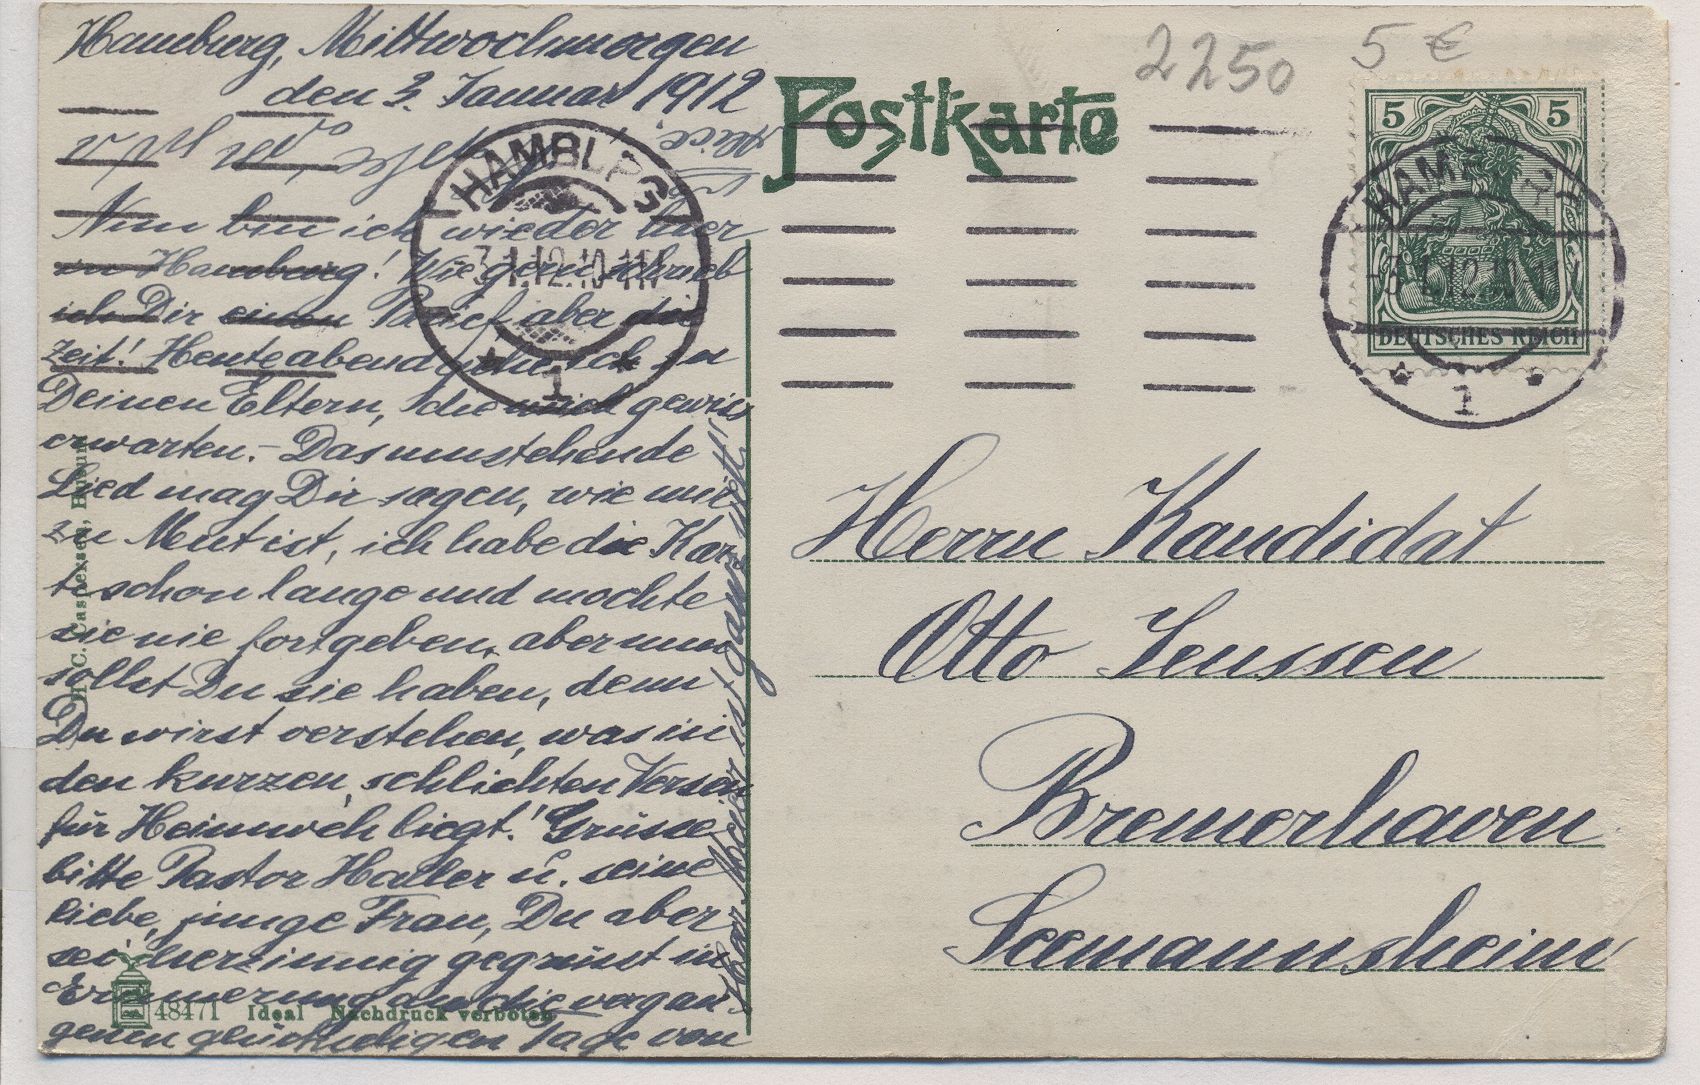 Hamburg, Mittwochmorgen
den 3. Januar 1912
Nun bin ich wieder hier
in Hamburg! Wie gern schrieb
ich Dir einen Brief aber die
Zeit! Heute abend gehe ich zu
Deinen Eltern, die mich gewiss
erwarten. – Das umstehende
Lied mag Dir sagen, wie mir
zu Mut ist, ich habe die Kar-
te schon lange und mochte
sie nie fortgeben, aber nun
sollst Du sie haben, denn
Du wirst verstehen, was in
den kurzen, schlichten Versen
für Heimweh liegt! Grüsse
bitte Pastor Haller u. seine
liebe, junge Frau, Du aber
sei herzinnig gegrüsst in
Erinnerung an die vergan-
genen glücklichen Tage von
ist ganz nett!
Postkarte
2250
5 €
5 5
DEUTSCHES REICH
HAMBURG
3.1.12.10-11V
* 1 *
HAMBURG
3.1.12.
* 1 *
Herrn Kandidat
Otto Jenssen
Bremerhaven
Seemannsheim
C. Caspersen, Husum
48471 Ideal Nachdruck verboten